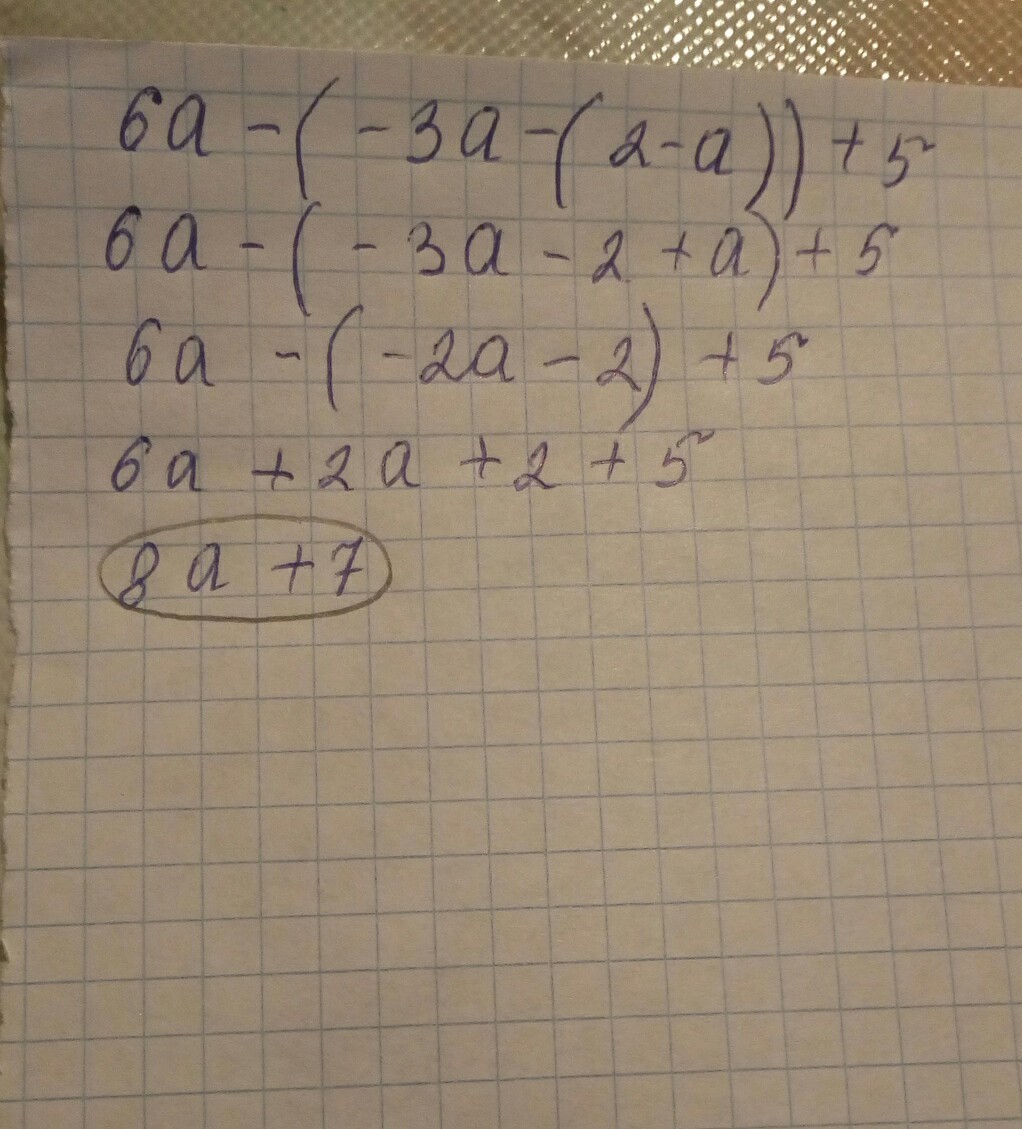 6a - ( - 3a - ( 2 - a)) + 5
6a - ( - 3a - 2 + a) + 5
6a - ( - 2a - 2) + 5
6a + 2a + 2 + 5
8a + 7